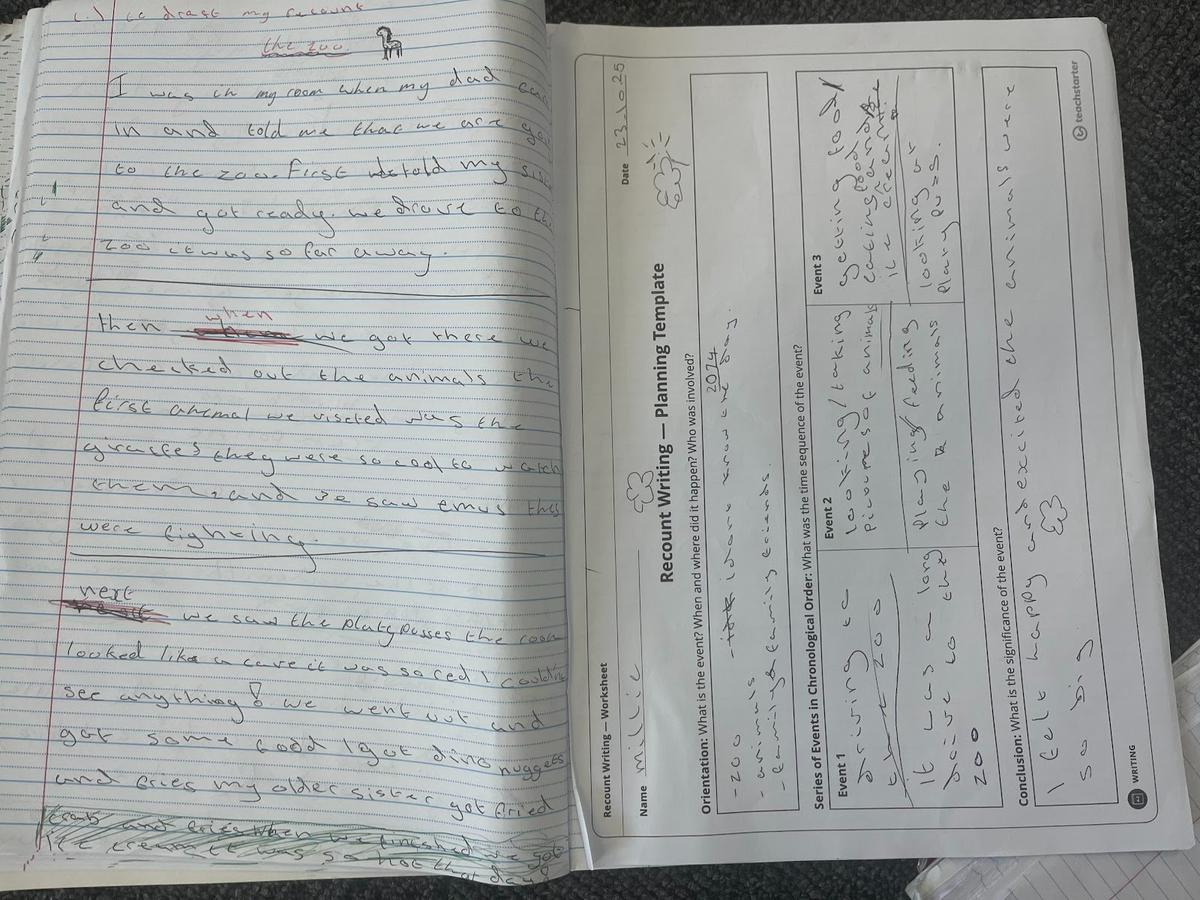 to draft my recount
the zoo
I was in my room when my dad
in and told me that we are
to the zoo. First we told my
and got ready. we drove to
zoo it was so far away.
then when we got there we
checked out the animals the
first animal we visited was the
giraffes they were so cool to watch
them, and we saw emus they
were fighting.
next we saw the platypasses the room
looked like a cave it was so red I couldn't
see anything! we went out and
got some food I got dino nuggets
and fries my older sister got fried
crab and fries when we finished we got
ice cream it was so hot that day!
Recount Writing – Worksheet
Name millie
Date 23.10.25
Recount Writing — Planning Template
Orientation: What is the event? When and where did it happen? Who was involved?
- zoo
- I dont know the day. 2024
- animals
- family & family friends.
Series of Events in Chronological Order: What was the time sequence of the event?
Event 1
driving to
the zoo
It was a long
drive to the
zoo
Event 2
looking/taking
picoures of animals
playing/feeding
the animals
Event 3
getting food/
eating food
ice cream
looking at
platy puss.
Conclusion: What is the significance of the event?
I felt happy and excited the animals were
so big
WRITING
teachstarter